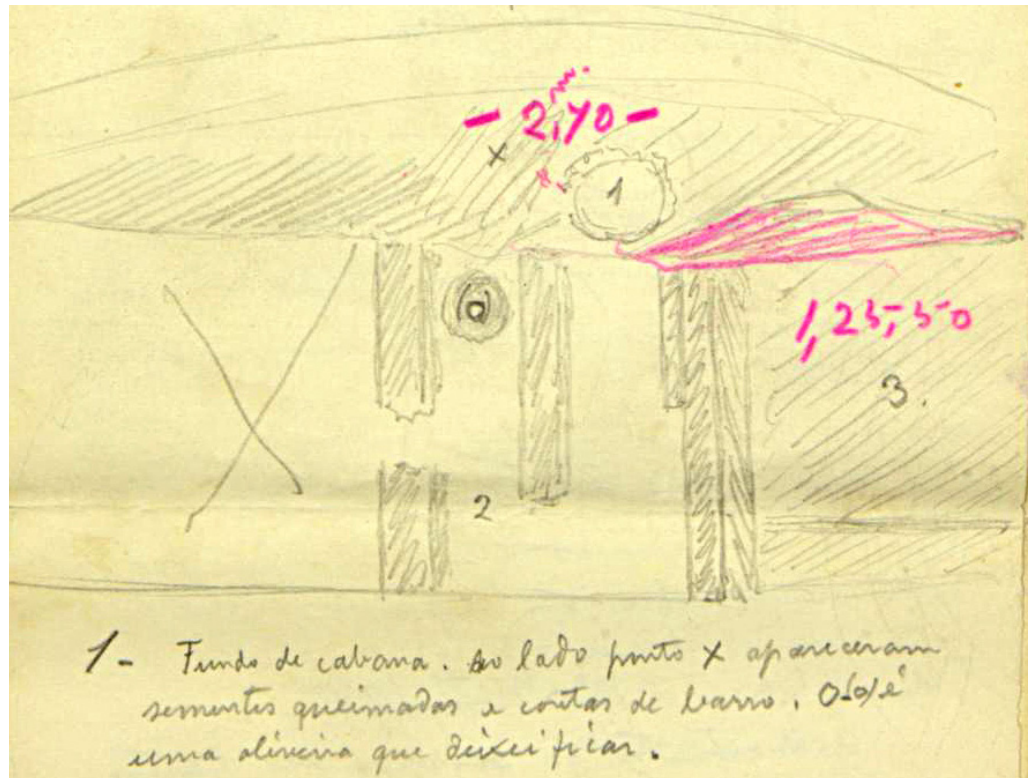 m.
- 2,70 -
x
1
1,25,50
3.
2
1 - Fundo de cabana. Ao lado ponto X apareceram
sementes queimadas e contas de barro. O é
uma oliveira que deixei ficar.